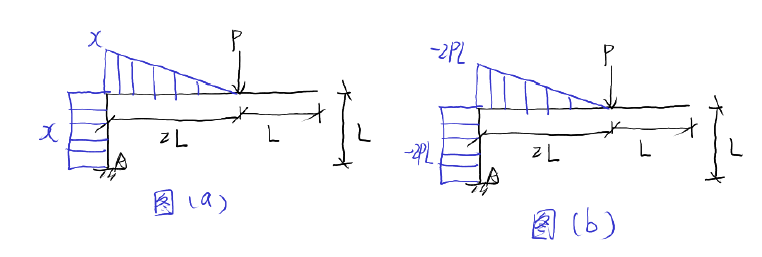 x
P
x
2L
L
L
A
图(a)
-2PL
P
-2PL
2L
L
L
A
图(b)